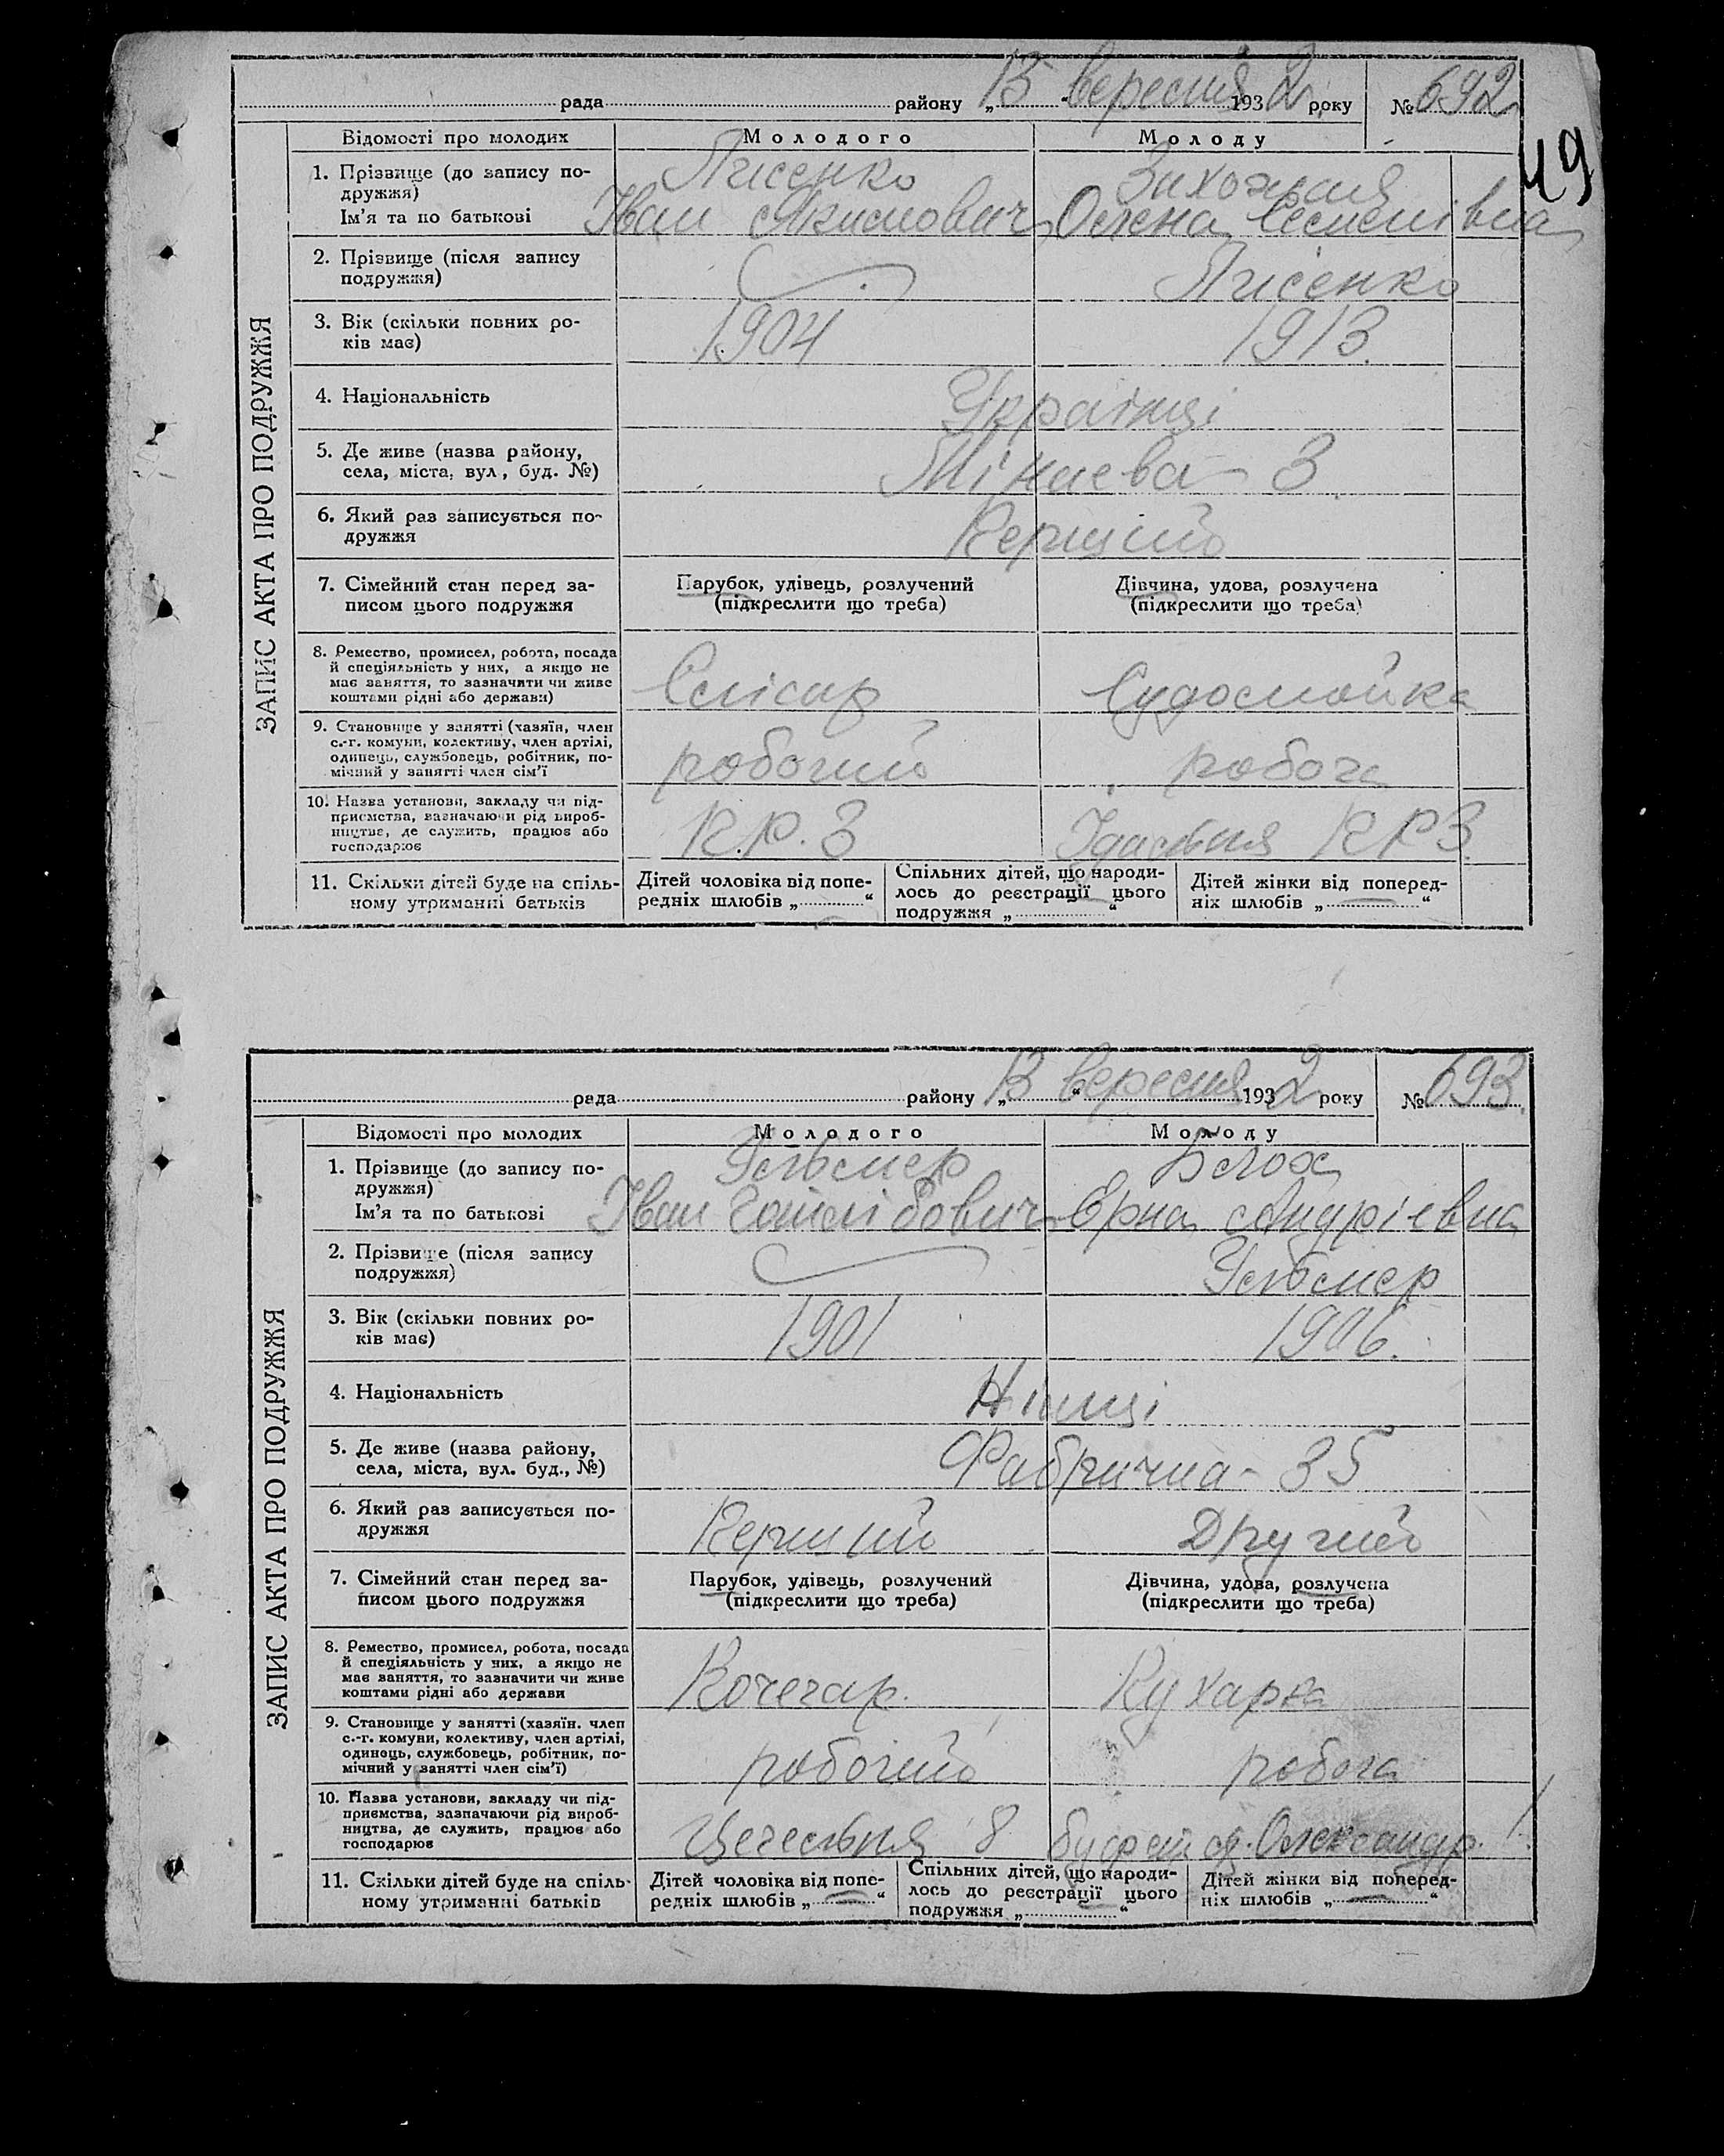 рада района „13“ вересня 1932 року № 692
49
ЗАПИС АКТА ПРО ПОДРУЖЖЯ
Відомості про молодих Молодого Молоду
1. Прізвище (до запису по-
дружжя)
Ім'я та по батькові
Іван Якимович Олена Семенівна
2. Прізвище (після запису
подружжя)
3. Вік (скільки повних ро-
ків має)
1904 1913.
4. Національність
Українці
5. Де живе (назва району,
села, міста, вул., буд. №)
Мінаева - 3.
6. Який раз записується по-
дружжя
Перший
7. Сімейний стан перед за-
писом цього подружжя
Парубок, удівець, розлучений
(підкреслити що треба)
Дівчина, удова, розлучена
(підкреслити що треба)
8. Ремество, промисел, робота, посада
й спеціяльність у них, а якщо не
має заняття, то зазначити чи живе
коштами рідні або держави)
Слісар Судомойка
9. Становище у занятті (хазяїн, член
с.-г. комуни, колективу, член артілі,
одинець, службовець, робітник, по-
мічний у занятті член сім'ї
робочий робоча
10. Назва установи, закладу чи під-
приємства, зазначаючи рід вироб-
ництва, де служить, працює або
господарює
К.Р.З Їдальня КРЗ.
11. Скільки дітей буде на спіль-
ному утриманні батьків
Дітей чоловіка від попе-
редніх шлюбів „ “
Спільних дітей, що народи-
лось до реєстрації цього
подружжя „ “
Дітей жінки від поперед-
ніх шлюбів „ — “
рада району „13“ вересня 1932 року № 693.
ЗАПИС АКТА ПРО ПОДРУЖЖЯ
Відомості про молодих Молодого Молоду
1. Прізвище (до запису по-
дружжя)
Ім'я та по батькові
Іван Готлібович Ерна Андріевна
2. Прізвище (після запису
подружжя)
3. Вік (скільки повних ро-
ків має)
1901 1906.
4. Національність
Німці
5. Де живе (назва району,
села, міста, вул. буд., №)
Фабрична - 35
6. Який раз записується по-
дружжя
Перший Другий
7. Сімейний стан перед за-
писом цього подружжя
Парубок, удівець, розлучений
(підкреслити що треба)
Дівчина, удова, розлучена
(підкреслити що треба)
8. Ремество, промисел, робота, посада
й спеціяльність у них, а якщо не
має заняття, то зазначити чи живе
коштами рідні або держави
Кочегар. Кухарка
9. Становище у занятті (хазяїн. член
с.-г. комуни, колективу, член артілі,
одинець, службовець, робітник, по-
мічний у занятті член сім'ї)
робочий робоча
10. Назва установи, закладу чи під-
приємства, зазначаючи рід вироб-
ництва, де служить, працює або
господарює
Цегельня 8 буфет ст. Олександр.
11. Скільки дітей буде на спіль-
ному утриманні батьків
Дітей чоловіка від попе-
редніх шлюбів „ — “
Спільних дітей, що народи-
лось до реєстрації цього
подружжя „ — “
Дітей жінки від поперед-
ніх шлюбів „ — “